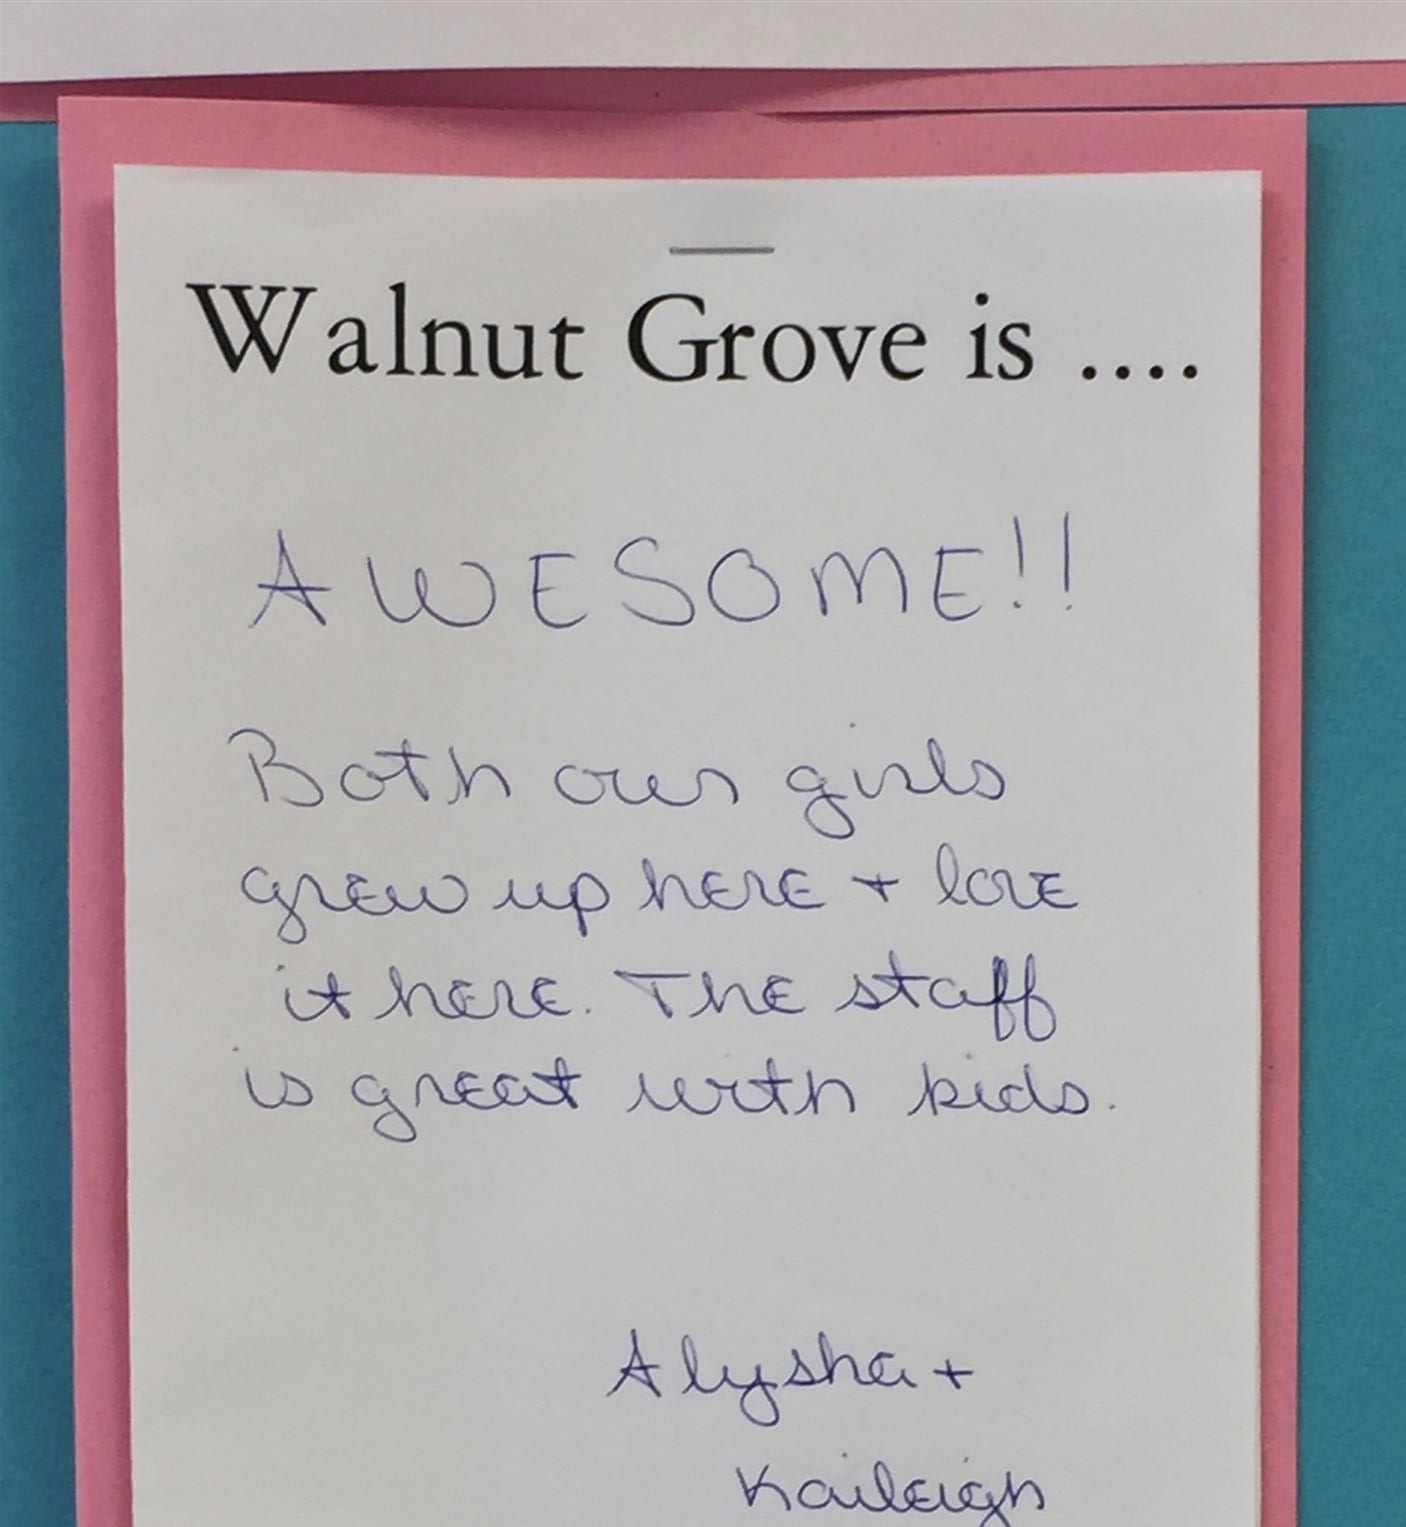 Walnut Grove is ....
AWESOME!!
Both our girls
grew up here + love
it here. The staff
is great with kids.
Alysha +
Kaileigh